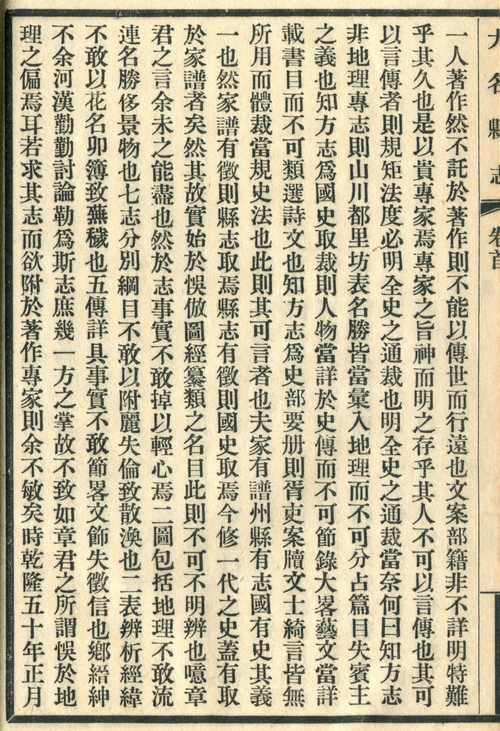 大名縣志 卷首
一人著作然不託於著作則不能以傳世而行遠也文案部籍非不詳明特難
乎其久也是以貴專家焉專家之旨神而明之存乎其人不可以言傳也其可
以言傳者則規矩法度必明全史之通裁也明全史之通裁當奈何曰知方志
非地理專志則山川都里坊表名勝皆當彙入地理而不可分占篇目失賓主
之義也知方志爲國史取裁則人物當詳於史傳而不可節錄大畧藝文當詳
載書目而不可類選詩文也知方志爲史部要册則胥吏案牘文士綺言皆無
所用而體裁當規史法也此則其可言者也夫家有譜州縣有志國有史其義
一也然家譜有徵則縣志取焉縣志有徵則國史取焉今修一代之史蓋有取
於家譜者矣然其故實始於悞倣圖經纂類之名目此則不可不明辨也噫章
君之言余未之能盡也然於志事實不敢掉以輕心焉二圖包括地理不敢流
連名勝侈景物也七志分別綱目不敢以附麗失倫致散渙也二表辨析經緯
不敢以花名卯簿致蕪穢也五傳詳具事實不敢節畧文飾失徵信也鄉縉紳
不余河漢勤勤討論勒爲斯志庶幾一方之掌故不致如章君之所謂悞於地
理之偏焉耳若求其志而欲附於著作專家則余不敏矣時乾隆五十年正月